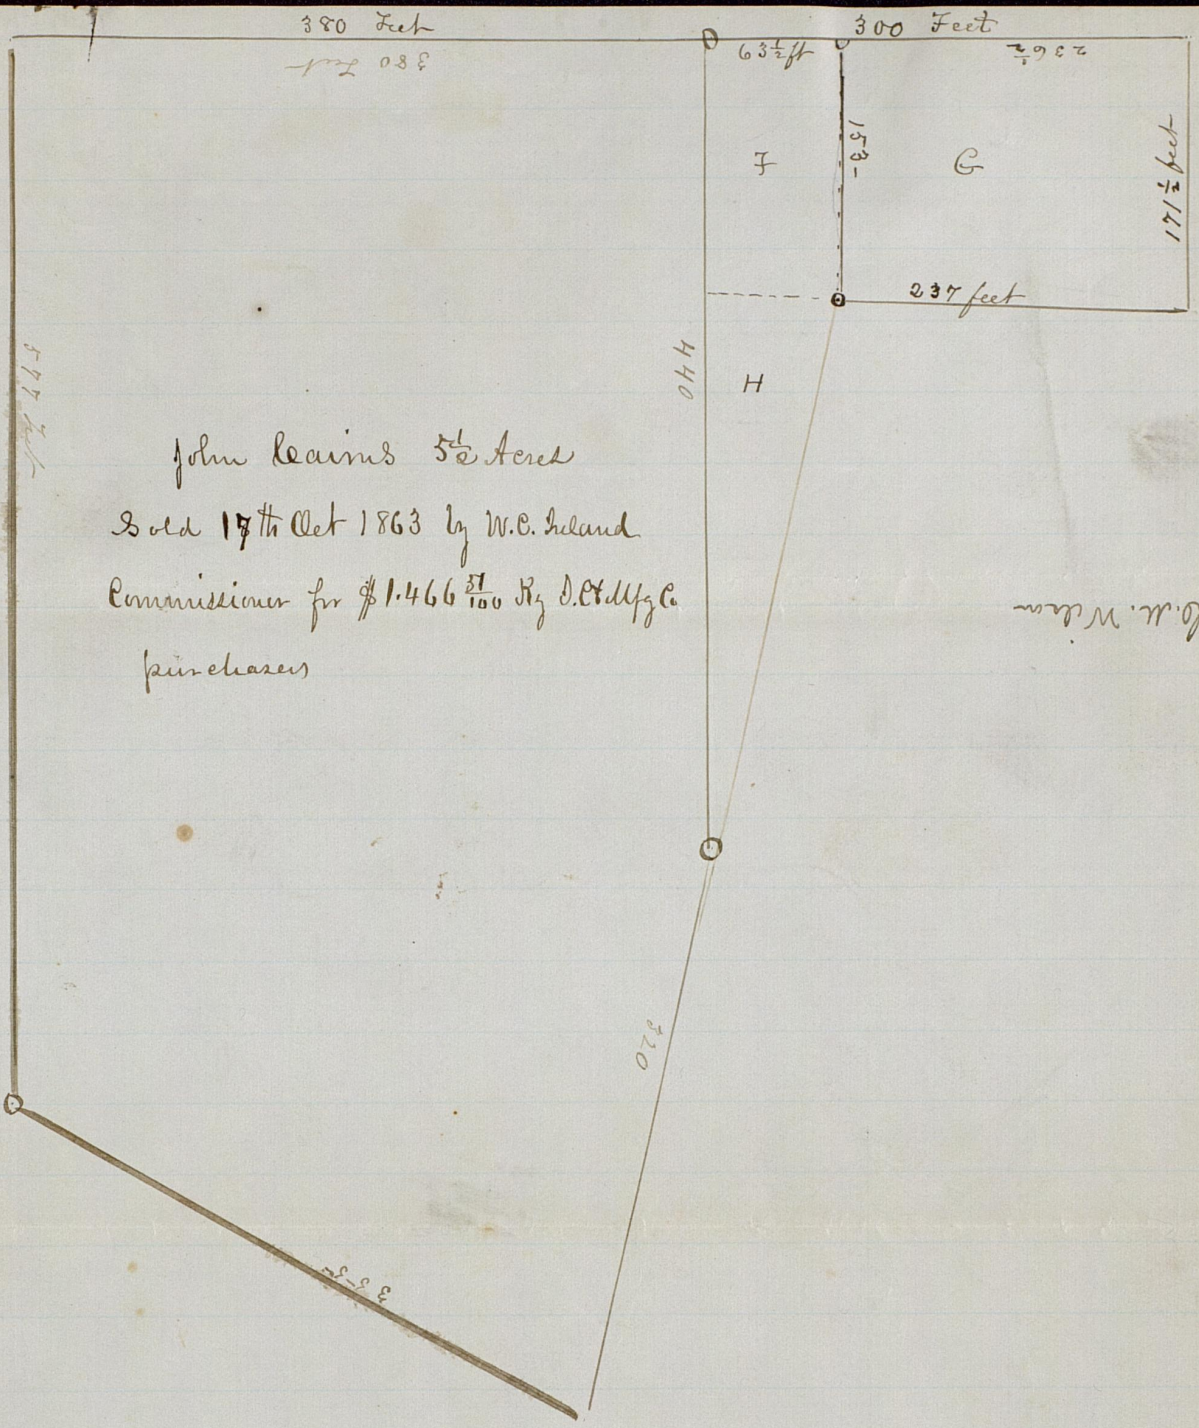 380 Feet
300 Feet
380 Feet
63½ ft
236½
153-
F
G
171½ feet
237 feet
440
H
577 Feet
John Cairns 5½ Acres
Sold 17th Oct 1863 by W.C. Ireland
Commissioner for $1.466 51/100 Ky I.C&Mfg Co
purchasers
C.M. Wilson
320
335